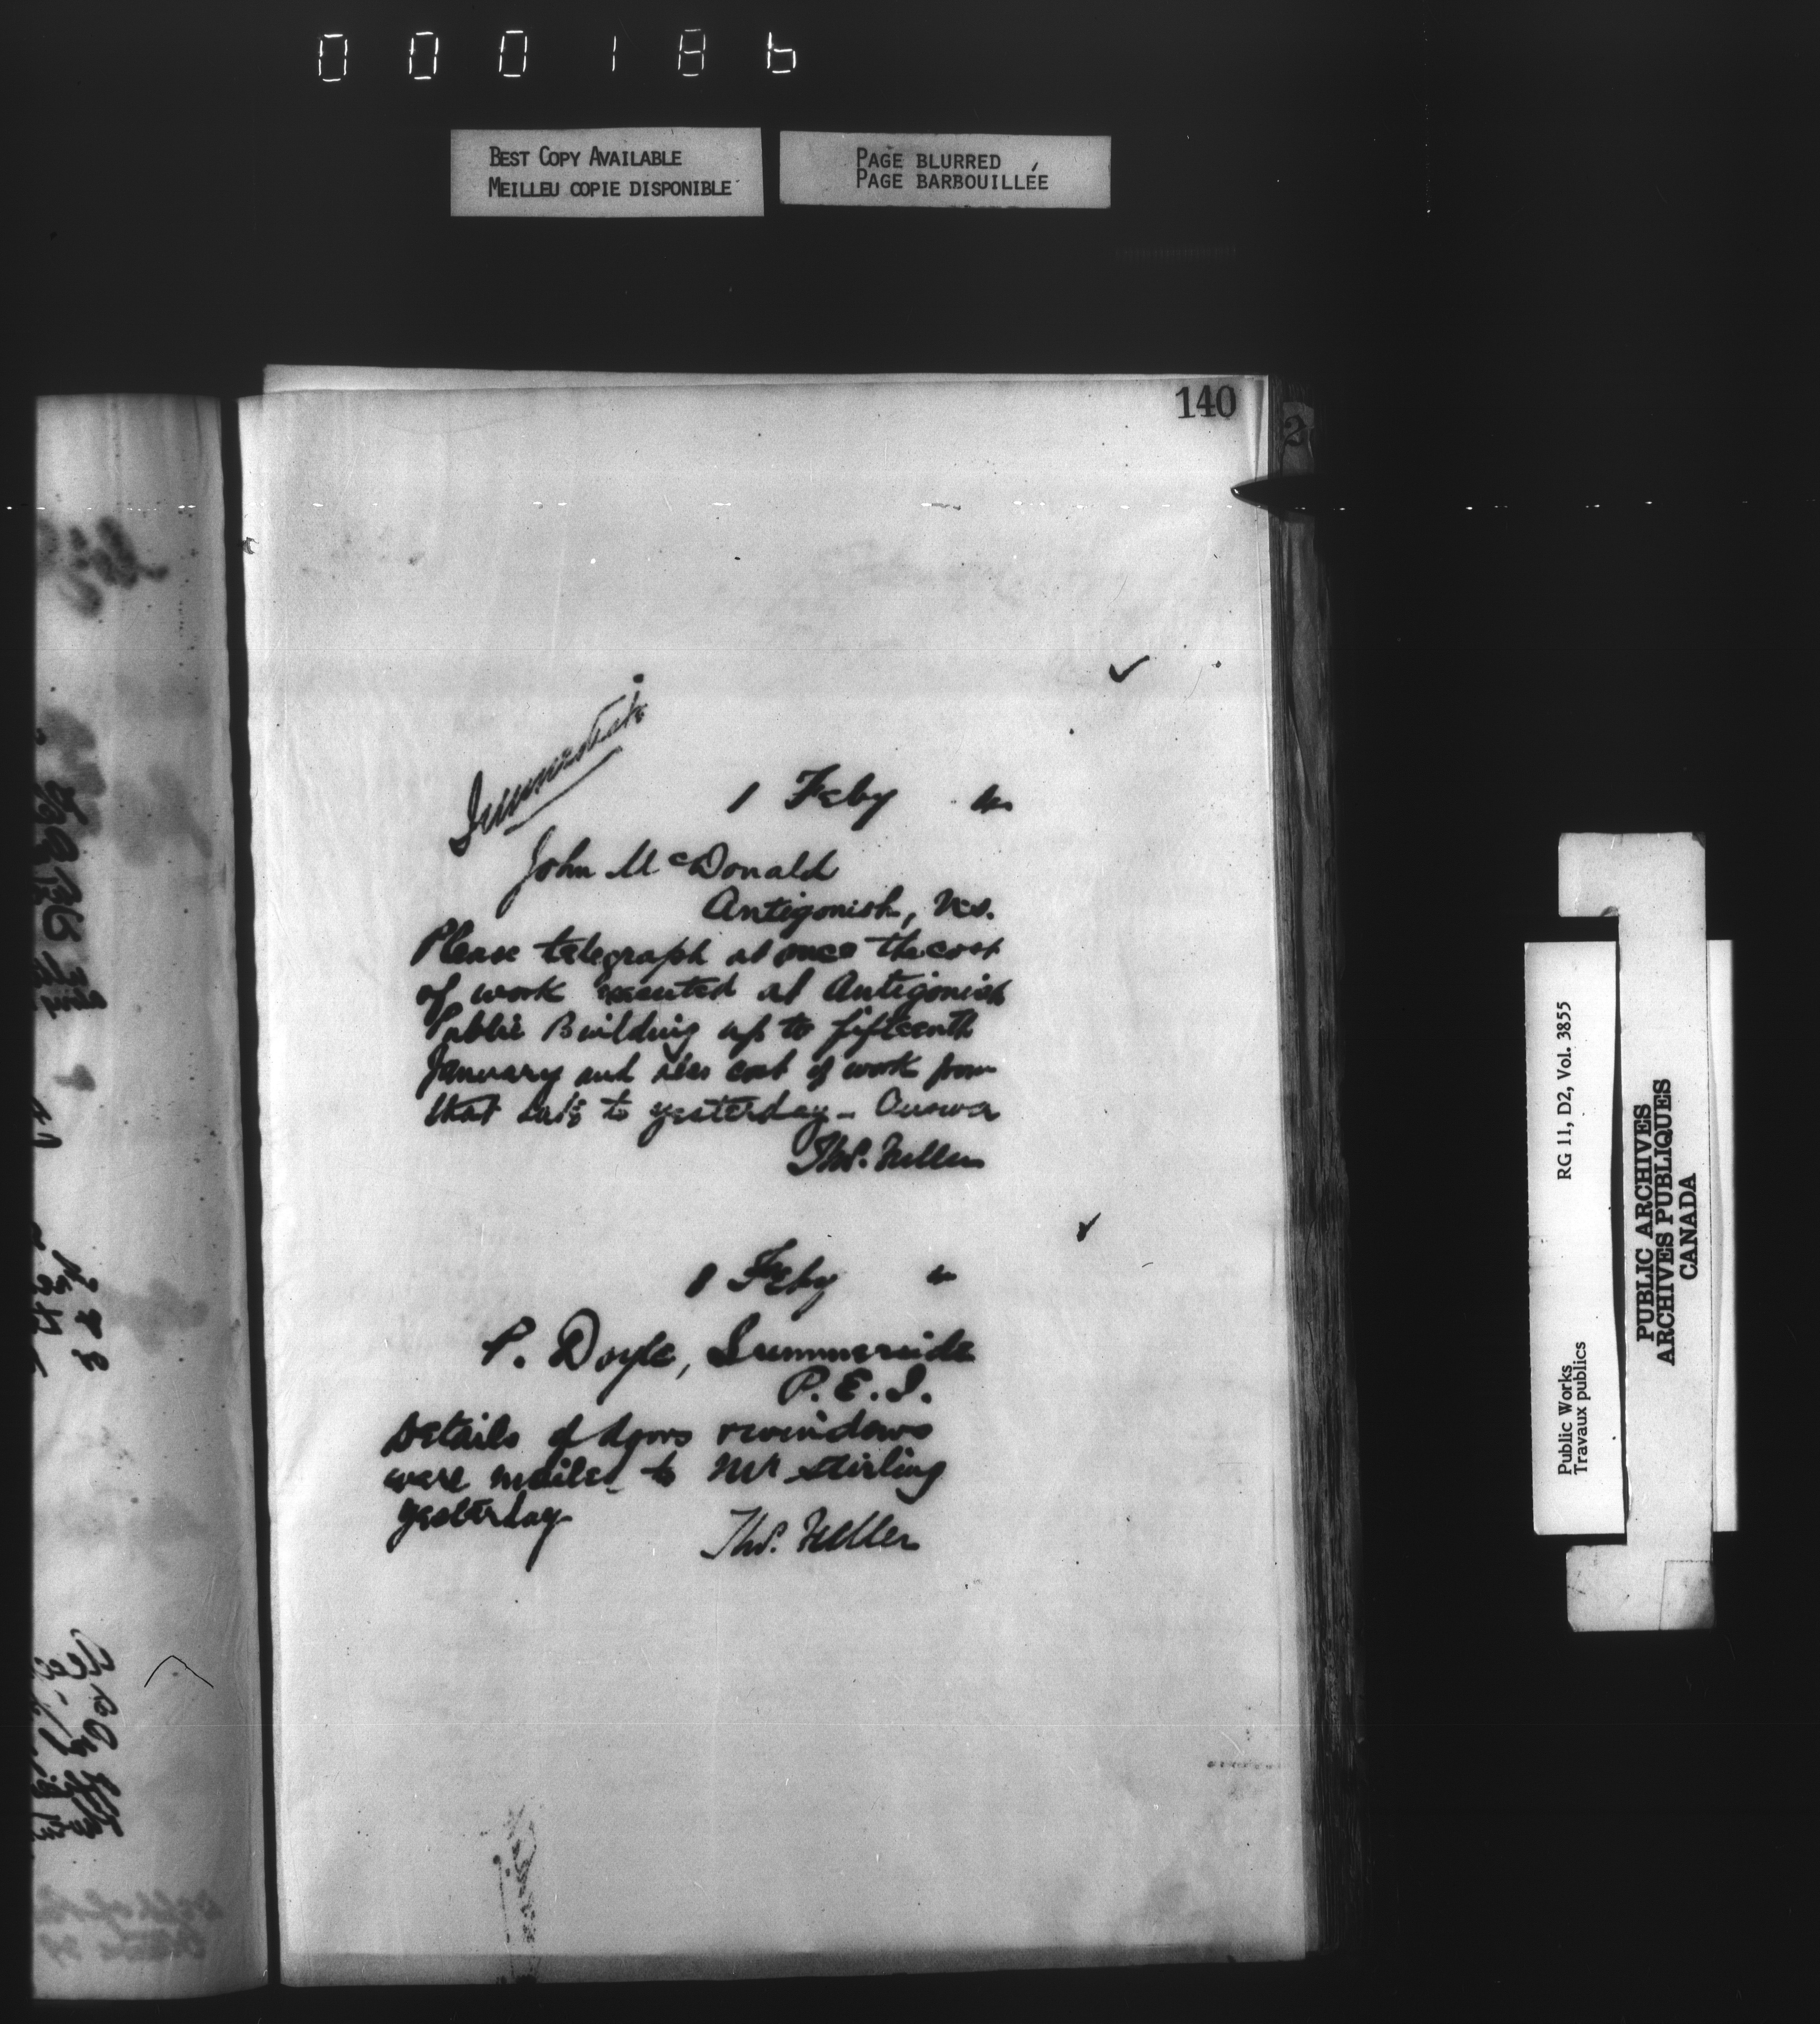 000186
BEST COPY AVAILABLE
MEILLEU COPIE DISPONIBLE
PAGE BLURRED
PAGE BARBOUILLÉE
140
2
Immediate
1 Feby
John McDonald
Antigonish, N.S.
Please telegraph at once the cost
of work executed at Antigonish
Public Building up to fifteenth
January and also cost of work from
that date to yesterday - Answer
Thos. Fuller
1 Feby
P. Doyle, Summerside
P.E.I.
Details of doors & windows
were mailed to Mr Stirling
yesterday
Thos. Fuller
Public Works
Travaux publics
RG 11, D2, Vol. 3855
PUBLIC ARCHIVES
ARCHIVES PUBLIQUES
CANADA